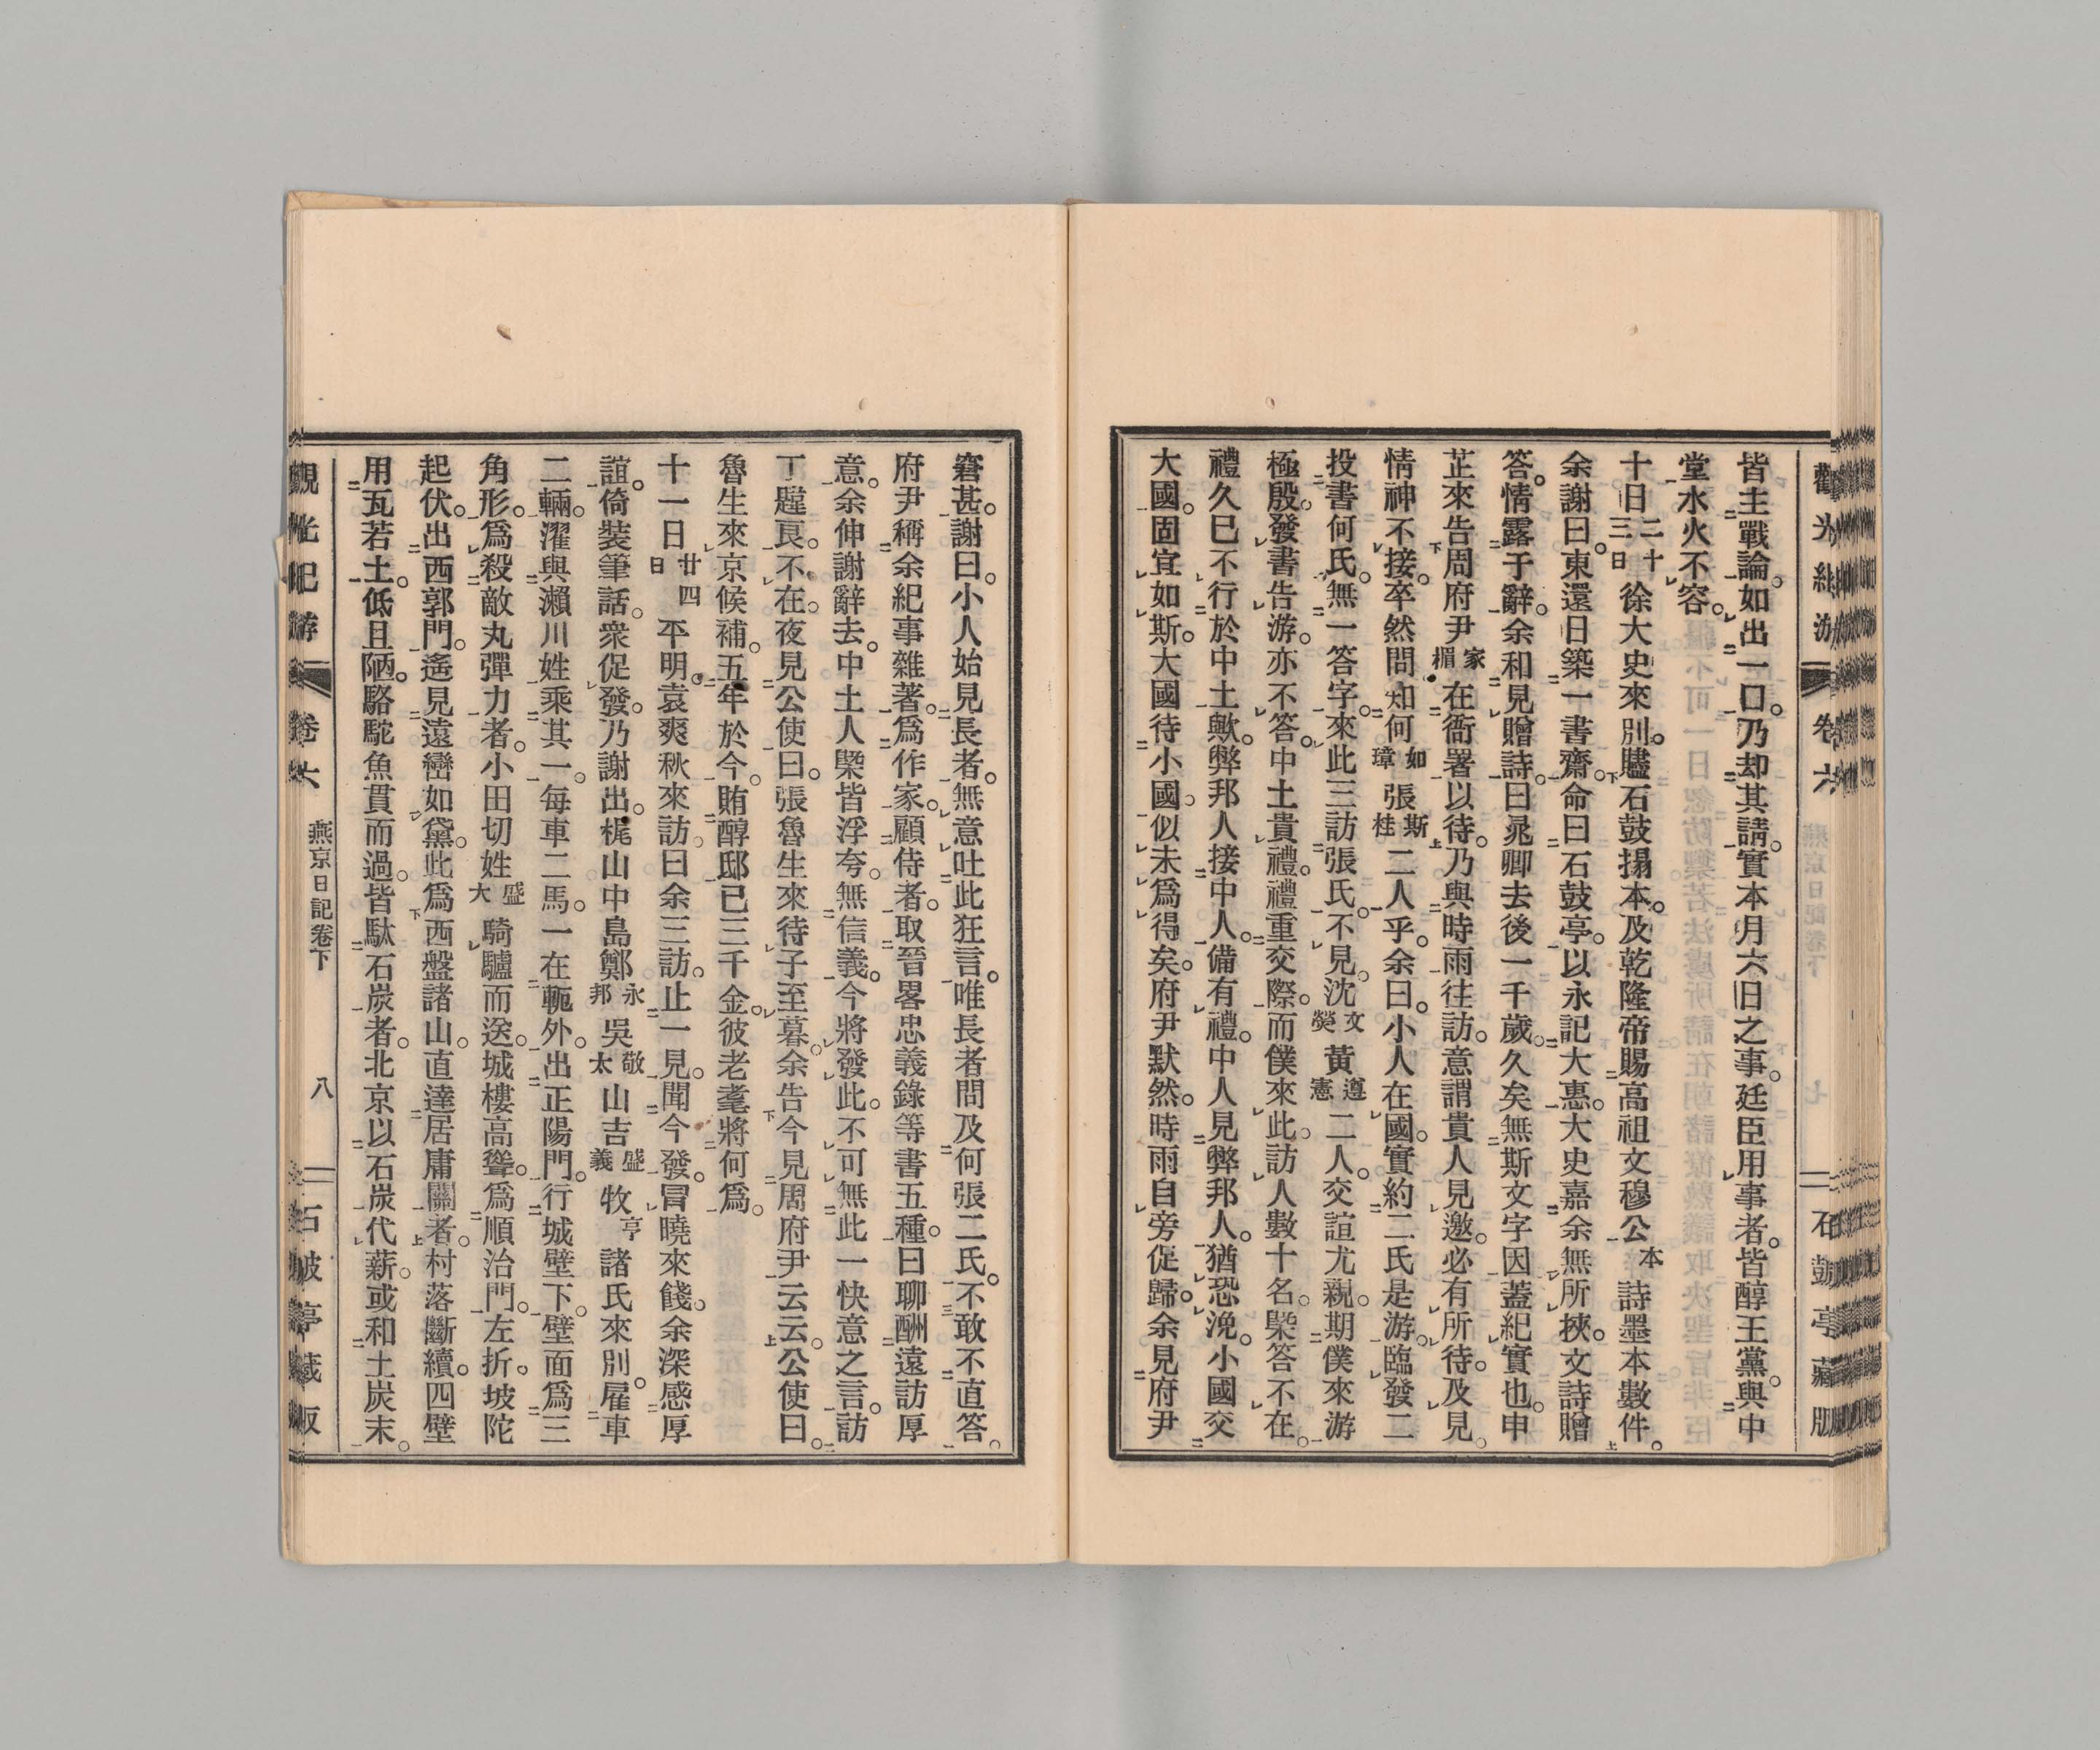 觀光紀游 卷六 石鼓亭藏版
皆主戰論。如出一口。乃却其請。實本月六日之事。廷臣用事者。皆醇王黨。與中
堂水火不容。
十日二十三日徐大史來別。贐石鼓搨本。及乾隆帝賜高祖文穆公本詩墨本數件。
余謝曰。東還日築一書齋。命曰石鼓亭。以永記大惠。大史嘉余無所挾。文詩贈
答。情露于辭。余和見贈詩。曰晁卿去後一千歲。久矣無斯文字因。蓋紀實也。申
芷來告周府尹家楣在衙署以待。乃與時雨往訪。意謂貴人見邀。必有所待。及見
情神不接。卒然問知何如璋張斯桂二人乎。余曰。小人在國。實約二氏是游。臨發二
投書何氏。無一答字。來此三訪張氏。不見。沈文熒黃遵憲二人。交誼尤親。期僕來游
極殷。發書告游。亦不答。中土貴禮。禮重交際。而僕來此。訪人數十名。槩答不在。
禮久已不行於中土歟。弊邦人接中人。備有禮。中人見弊邦人。猶恐浼。小國交
大國。固宜如斯。大國待小國。似未爲得矣。府尹默然。時雨自旁促歸。余見府尹
窘甚。謝曰。小人始見長者。無意吐此狂言。唯長者問及何張二氏。不敢不直答。
府尹稱余紀事雜著。爲作家。顧侍者。取晉畧忠義錄等書五種。曰聊酬遠訪厚
意。余伸謝辭去。中土人槩皆浮夸。無信義。今將發此。不可無此一快意之言。訪
丁韙良。不在。夜見公使。曰。張魯生來待子至暮。余告今見周府尹云云。公使曰。
魯生來京候補。五年於今。賄醇邸已三千金。彼老耄將何爲。
十一日廿四日平明。袁爽秋來訪曰余三訪。止一見。聞今發。冒曉來餞。余深感厚
誼。倚裝筆話。衆促發。乃謝出。梶山中島鄭永邦吳敬太山吉盛義牧亨諸氏來別。雇車
二輛。濯與瀨川姓乘其一。每車二馬。一在軛外。出正陽門。行城壁下。壁面爲三
角形。爲殺敵丸彈力者。小田切姓盛大騎驢而送。城樓高聳。爲順治門。左折。坡陀
起伏。出西郭門。遙見遠巒如黛。此爲西盤諸山。直達居庸關者。村落斷續。四壁
用瓦若土。低且陋。駱駝魚貫而過。皆駄石炭者。北京以石炭代薪。或和土炭末。
觀光紀游 卷六 燕京日記卷下 八 石鼓亭藏版